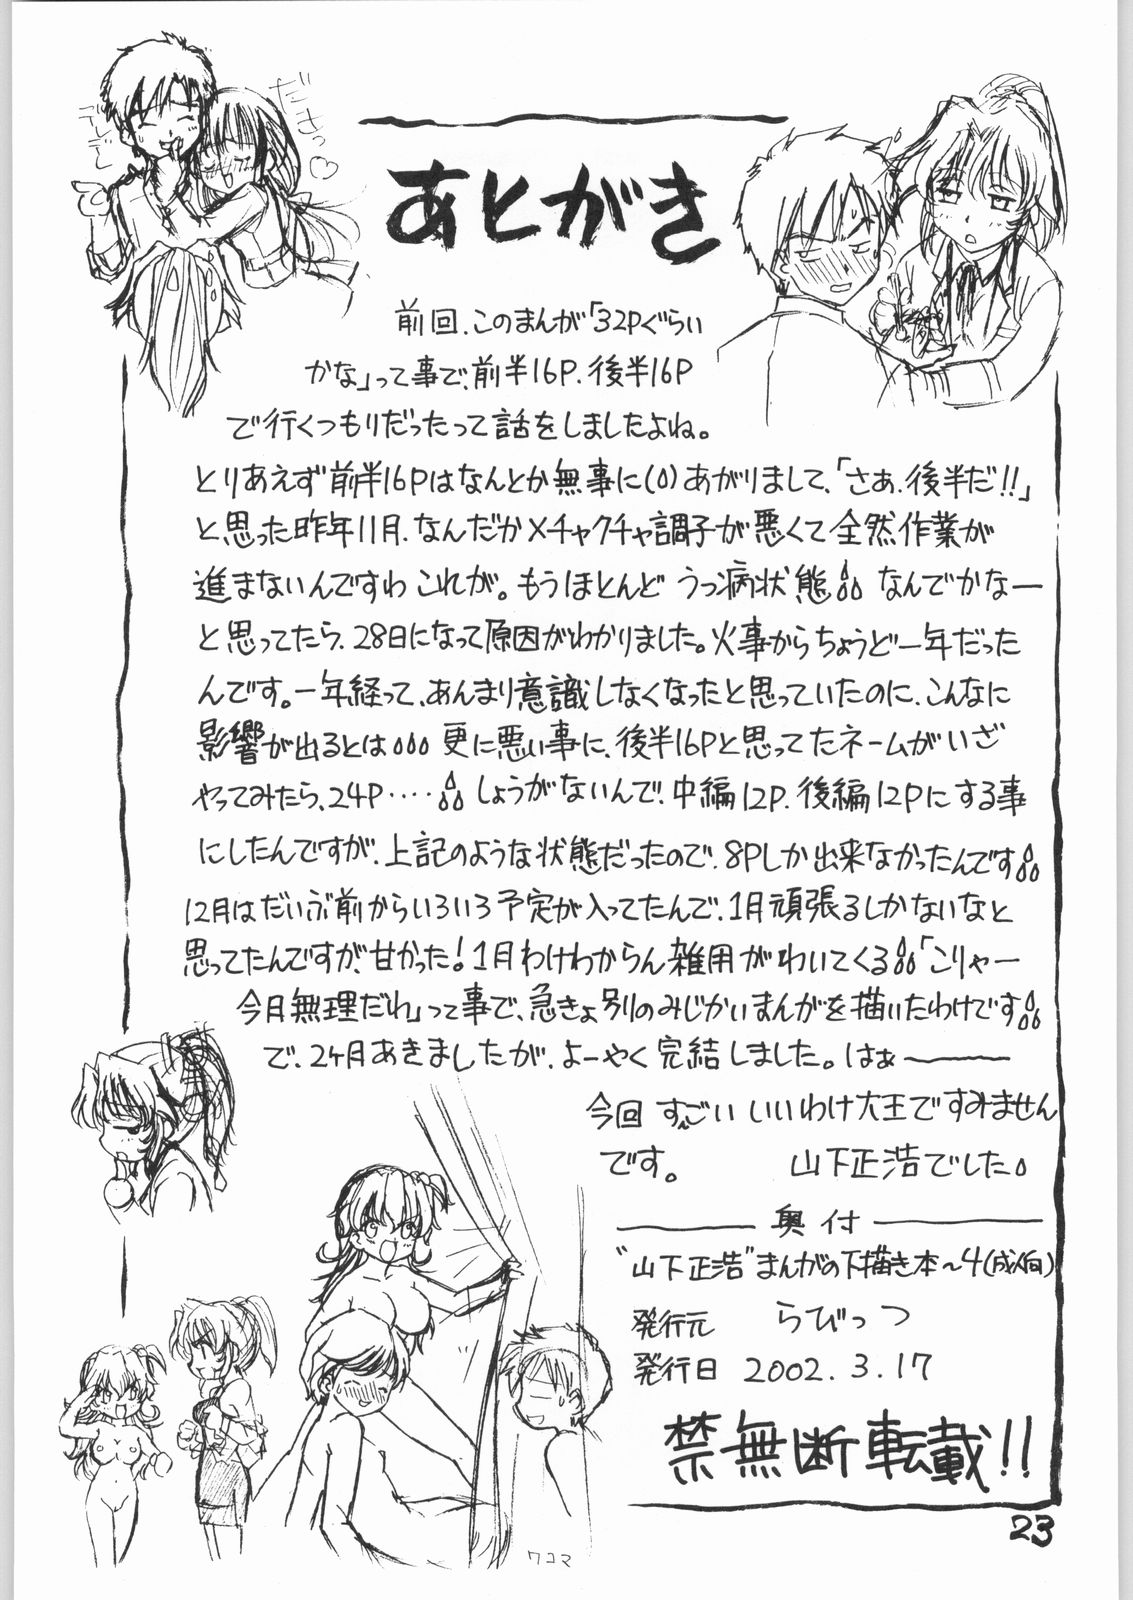 ださっ♡
デレデレ
あとがき
前回、このまんが「32Pぐらい
かな」って事で、前半16P、後半16P
で行くつもりだったって話をしましたよね。
とりあえず前半16Pはなんとか無事に(0)あがりまして、「さあ、後半だ!!」
と思った昨年11月、なんだかメチャクチャ調子が悪くて全然作業が
進まないんですわ これが。もうほとんど うつ病状態 なんでかなー
と思ってたら、28日になって原因がわかりました。火事からちょうど一年だった
んです。一年経って、あんまり意識しなくなったと思っていたのに、こんなに
影響が出るとは 更に悪い事に、後半16Pと思ってたネームがいざ
やってみたら、24P‥‥ しょうがないんで、中編12P、後編12Pにする事
にしたんですが、上記のような状態だったので、8Pしか出来なかったんです
12月はだいぶ前からいろいろ予定が入ってたんで、1月頑張るしかないなと
思ってたんですが、甘かった!1月わけわからん雑用がわいてくる「こりゃー
今月無理だわ」って事で、急きょ別のみじかいまんがを描いたわけです
で、2ヶ月あきましたが、よーやく完結しました。はぁ〜
今回 すっごい いいわけ大王ですみません
です。 山下正浩でした。
奥付
"山下正浩"まんがの下描き本〜4(成人向)
発行元 らびっつ
発行日 2002.3.17
禁無断転載!!
23
ワコマ